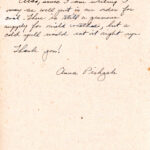 Also, since I am writing I
may as well put in an order for
coal. There is still a generous
supply for mild weather, but a
cold spell would eat it right up.
Thank you!
Anna